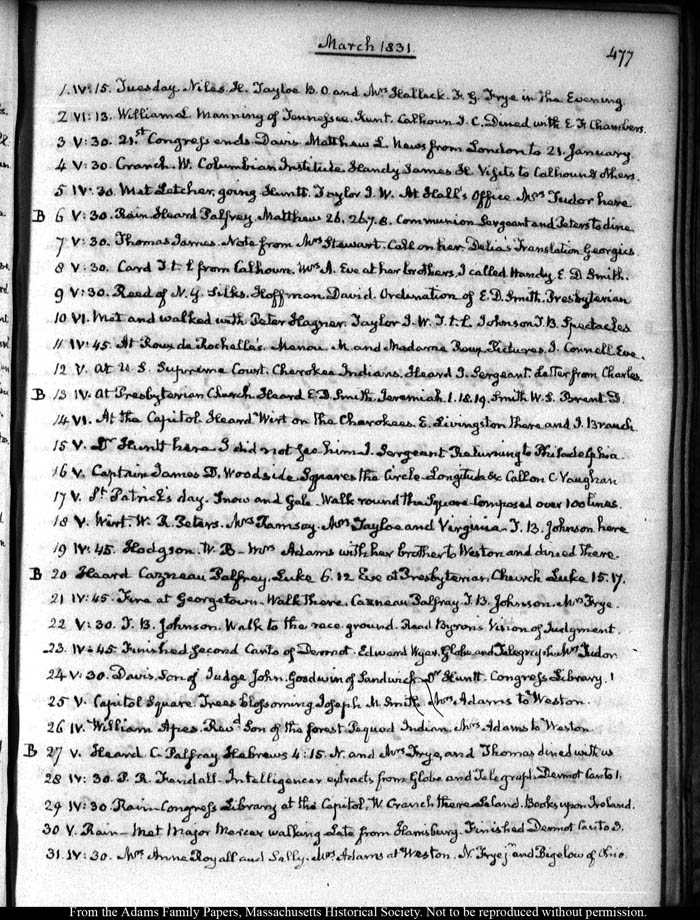 March 1831.
477
1. IV:15. Tuesday. Niles. H. Tayloe B. O. and Mrs Hallack. N. G. Frye in the Evening
2 VI:13. William L. Manning of Tennessee. Hunt. Calhoun J. C. Dined with E. F. Chambers.
3 V:30. 21.st Congress ends. Davis. Matthew L. News from London to 21. January
4 V:30. Cranch. W. Columbian Institute. Handy James H. Visits to Calhoun & others.
5 IV:30. Met Letcher, going. Huntt. Taylor J. W. At Hall's office. Mrs Tudor here
B 6 V:30. Rain. Heard Palfrey. Matthew 26. 26.7.8. Communion Sergeant and Peters to dine
7 V:30. Thomas James. Note from Mrs Stewart. Call on her. Delia's Translation Georgics
8 V:30. Card J. t. L from Calhoun. Mrs A. Eve at her brothers. I called Handy. E. D. Smith.
9 V:30. Reed of N. Y. Silks. Hoffman. David. Ordination of E. D. Smith. Presbyterian
10 VI. Met and walked with Peter Hagner. Taylor J. W. J. t. L. Johnson J. B. Spectacles
11 IV:45. At Roux de Rochelle's. Menou. M. and Madame Roux. Pictures. J. Connell Eve.
12 V. At U. S. Supreme Court. Cherokee Indians. Heard J. Sergeant. Letter from Charles.
B 13 IV. At Presbyterian Church. Heard E. D. Smith. Jeremiah 1. 18.19. Smith W. S. Brent. D.
14 VI. At the Capitol. Heard Wirt on the Cherokees. E. Livingston there and J. Branch.
15 V. Dr Huntt here. I did not see him J. Sergeant Returning to Philadelphia.
16 V. Captain James D. Woodside. Squares the Circle. Longitude &c Call on C. Vaughan
17 V. St Patrick's day. Snow and Gale. Walk round the Square. Composed over 100 lines.
18 V. Wirt. W. R. Peters. Mrs Ramsay. Mrs Tayloe and Virginia. J. B. Johnson here
19 IV:45. Hodgson. W. B. Mrs Adams with her brother to Weston and dined there.
B 20 Heard Cazneau Palfrey. Luke 6. 12 Eve at Presbyterian Church Luke 15. 17.
21 IV:45. Fire at Georgetown. Walk there. Cazneau Palfray J. B. Johnson. Mrs Frye.
22 V:30. J. B. Johnson. Walk to the race ground. Read Byron's Vision of Judgment.
23. IV:45 Finished second Canto of Dermot. Edward Wyer. Globe and Telegraph. Mrs Tudor
24 V:30. Davis. Son of Judge John. Goodwin of Sandwich. Dr Huntt. Congress Library.
25 V. Capitol Square. Trees blossoming Joseph. M. Smith. Mrs Adams to Weston.
26 IV. William Apes. Revd Son of the forest Pequod Indian. Mrs Adams to Weston
B 27 V. Heard C. Palfray Hebrews 4:15. N. and Mrs Frye, and Thomas dined with us
28 IV:30. P. R. Fendall. Intelligencer extracts from Globe and Telegraph. Dermot Canto 1.
29 IV:30 Rain. Congress Library at the Capitol. W. Cranch there Leland. Books upon Ireland.
30 V. Rain. Met Major Mercer walking late from Harrisburg. Finished Dermot Canto 3.
31. IV:30. Mrs Anne Royall and Sally. Mrs Adams at Weston. N. Frye jr and Bigelow of Ohio.
From the Adams Family Papers, Massachusetts Historical Society. Not to be reproduced without permission.